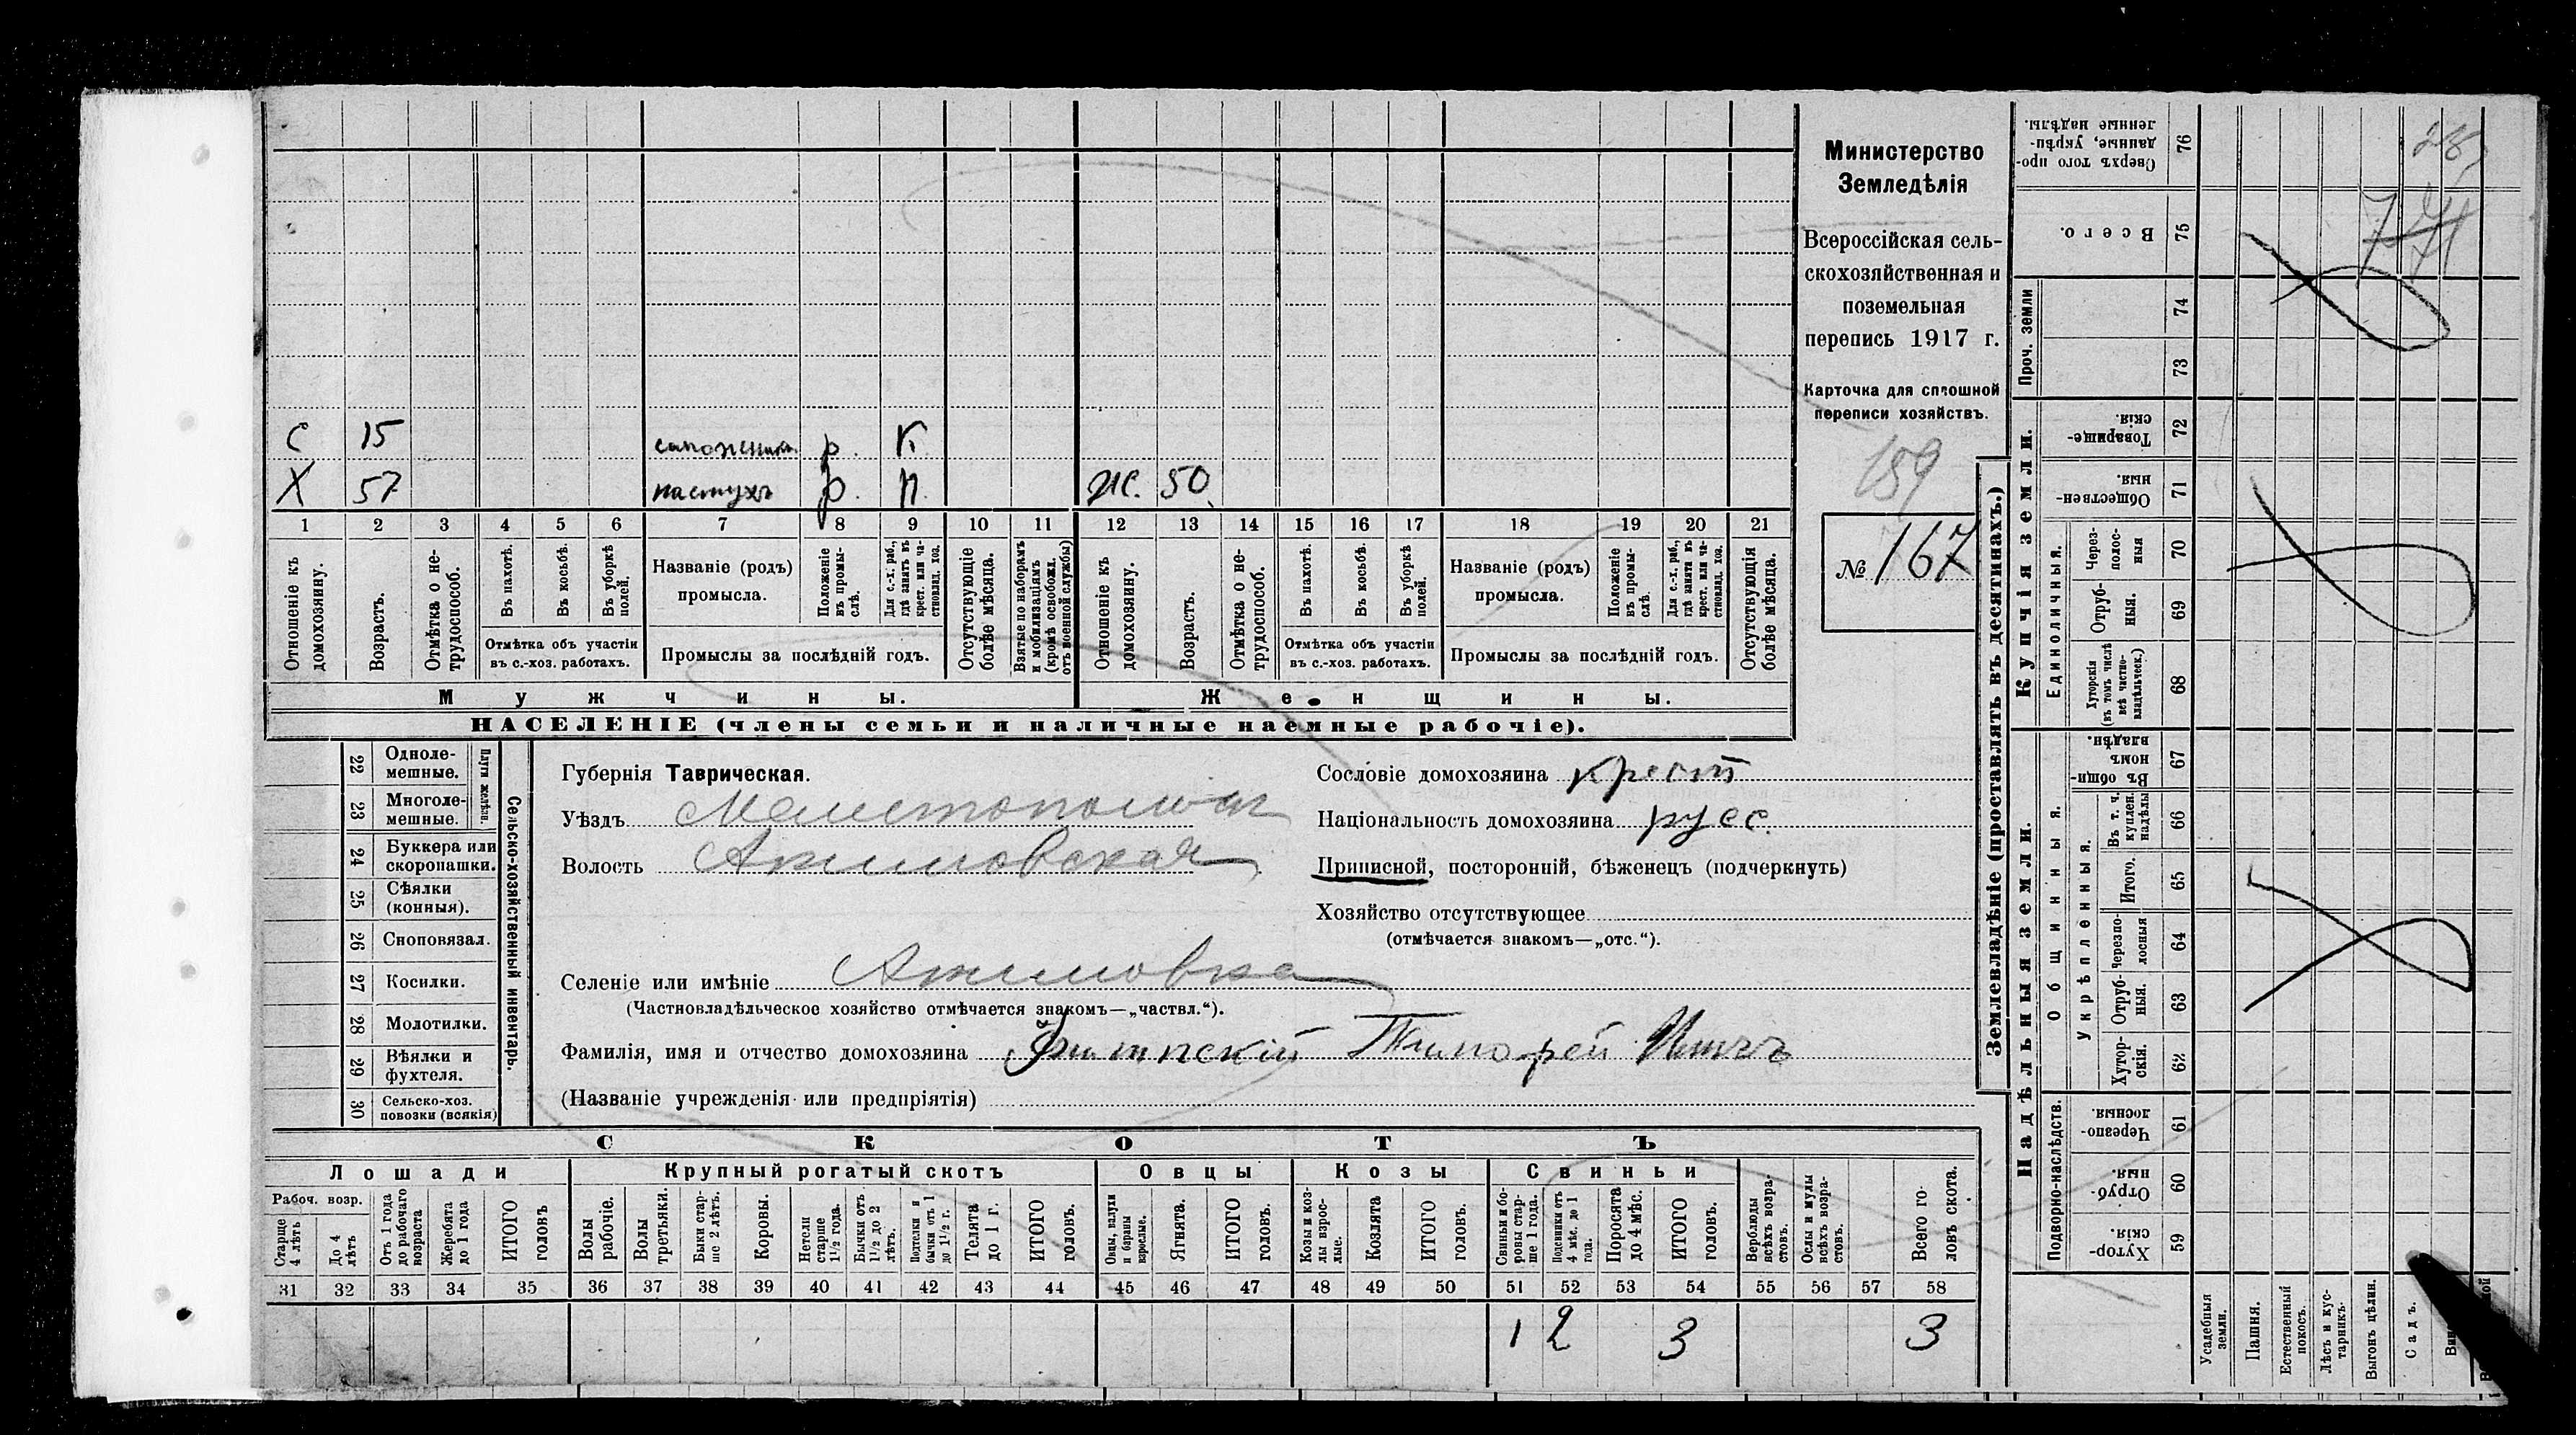 С 15 р. К.
Х 57 пастухъ р. П. Ж. 50.
1 2 3 4 5 6 7 8 9 10 11 12 13 14 15 16 17 18 19 20 21
Отношеніе къ домохозяину.
Возрастъ.
Отмѣтка о не-трудоспособ.
Въ пахотѣ.
Въ косьбѣ.
Въ уборкѣ полей.
Отмѣтка объ участіи
въ с.-хоз. работахъ.
Названіе (родъ)
промысла.
Положеніе въ промы-слѣ.
Для с.-х. раб., гдѣ занятъ въ крест. или ча-стновлад. хоз.
Промыслы за послѣдній годъ.
Отсутствующіе болѣе мѣсяца.
Взятые по наборамъ и мобилизаціямъ (кромѣ освобожд. отъ военной службы)
Отношеніе къ домохозяину.
Возрастъ.
Отмѣтка о не-трудоспособ.
Въ пахотѣ.
Въ косьбѣ.
Въ уборкѣ полей.
Отмѣтка объ участіи
въ с.-хоз. работахъ.
Названіе (родъ)
промысла.
Положеніе въ промы-слѣ.
Для с.-х. раб., гдѣ занята въ крест. или ча-стновлад. хоз.
Промыслы за послѣдній годъ.
Отсутствующія болѣе мѣсяца.
Мужчины.
Женщины.
НАСЕЛЕНІЕ (члены семьи и наличные наемные рабочіе).
Министерство
Земледѣлія
Всероссійская сель-
скохозяйственная и
поземельная
перепись 1917 г.
Карточка для сплошной
переписи хозяйствъ.
159
№ 167
22 Одноле-мешные.
23 Многоле-мешные.
Плуги желѣзн.
24 Буккера или скоропашки.
25 Сѣялки (конныя).
26 Сноповязал.
27 Косилки.
28 Молотилки.
29 Вѣялки и фухтеля.
30 Сельско-хоз. повозки (всякія)
Сельско-хозяйственный инвентарь.
Губернія Таврическая.
Уѣздъ Мелитопольск
Волость Акимовская
Селеніе или имѣніе Акимовка
(Частновладѣльческое хозяйство отмѣчается знакомъ—„частвл.“).
Фамилія, имя и отчество домохозяина Тимофей
(Названіе учрежденія или предпріятія)
Сословіе домохозяина крест
Національность домохозяина русс.
Приписной, посторонній, бѣженецъ (подчеркнуть)
Хозяйство отсутствующее
(отмѣчается знакомъ—„отс.“).
СКОТЪ
Лошади
Рабоч. возр.
Старше 4 лѣтъ
До 4 лѣтъ
Отъ 1 года до рабочаго возраста
Жеребята до 1 года
ИТОГО головъ
Крупный рогатый скотъ
Волы рабочіе.
Волы третьяки.
Быки стар-ше 2 лѣтъ.
Коровы.
Нетели старше 1½ года.
Бычки отъ 1½ до 2 лѣтъ.
Подтелки и бычки отъ 1 до 1½ г.
Телята до 1 г.
ИТОГО головъ.
Овцы
Овцы, валухи и бараны взрослые.
Ягнята.
ИТОГО головъ.
Козы
Козы и коз-лы взрос-лые.
Козлята
ИТОГО головъ.
Свиньи
Свиньи и бо-ровы стар-ше 1 года.
Подсвинки отъ 4 мѣс. до 1 года.
Поросята до 4 мѣс.
ИТОГО головъ.
Верблюды всѣхъ возра-стовъ.
Ослы и мулы всѣхъ возра-стовъ.
Всего го-ловъ скота.
31 32 33 34 35 36 37 38 39 40 41 42 43 44 45 46 47 48 49 50 51 52 53 54 55 56 57 58
1 2 3 3
Землевладѣніе (проставлять въ десятинахъ.)
Надѣльныя земли.
Купчія земли.
Проч. земли
Подворно-наслѣдств.
Общинныя.
Укрѣпленныя.
Единоличныя.
Сверхъ того про-данные, укрѣп-ленные надѣлы. 76
Всего. 75
74
73
Товарище-скія. 72
Обществен-ныя. 71
Через-полос-ныя 70
Отруб-ныя. 69
Хуторскія (въ томъ числѣ всѣ частно-владѣльческ.) 68
Въ общи-номъ владѣн. 67
Въ т. ч. куплен. надѣлы 66
Итого. 65
Черезпо-лосныя 64
Отруб-ныя. 63
Хутор-скія. 62
Черезпо-лосныя. 61
Отруб-ныя. 60
Хутор-скія. 59
Усадебныя земли.
Пашня.
Естественный покосъ.
Лѣсъ и кус-тарникъ.
Выгонъ цѣлин.
Садъ.